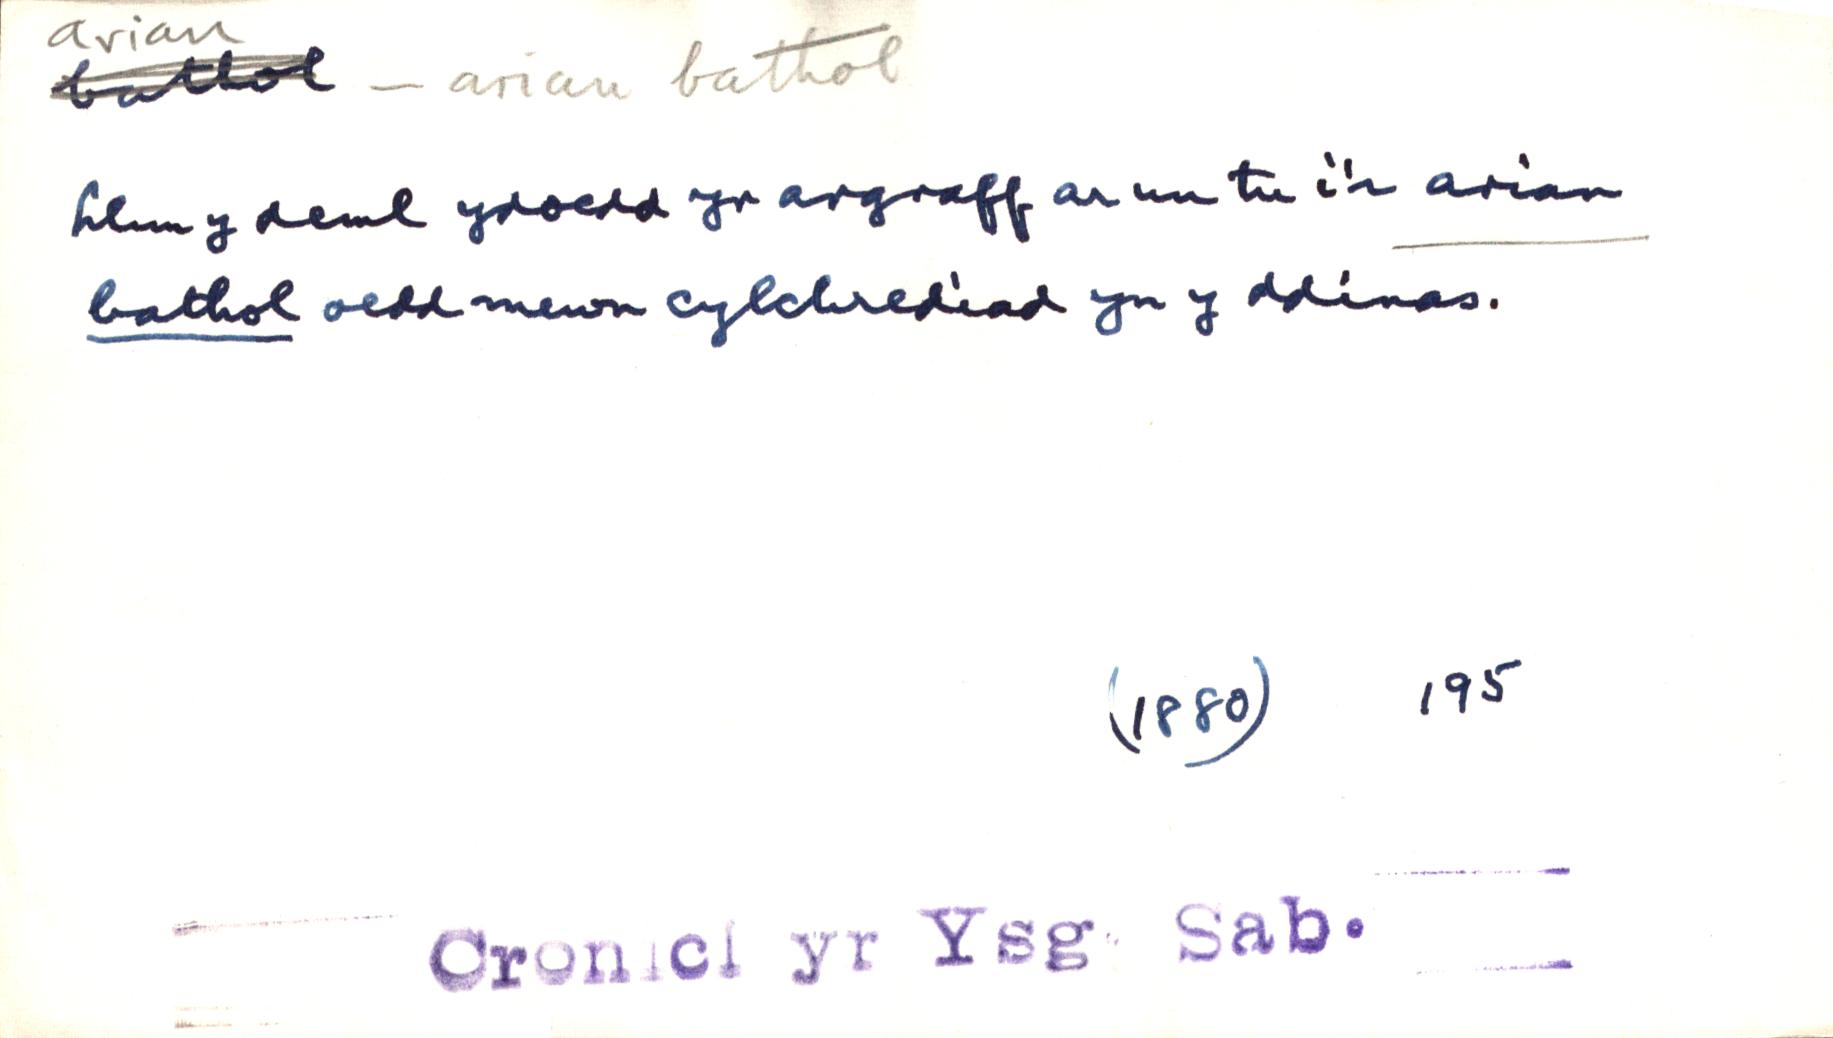 arian
bathol — arian bathol
Llun y deml ydoedd yr argraff ar un tu i'r arian
bathol oedd mewn cylchrediad yn y ddinas.
(1880) 195
Cronicl yr Ysg. Sab.